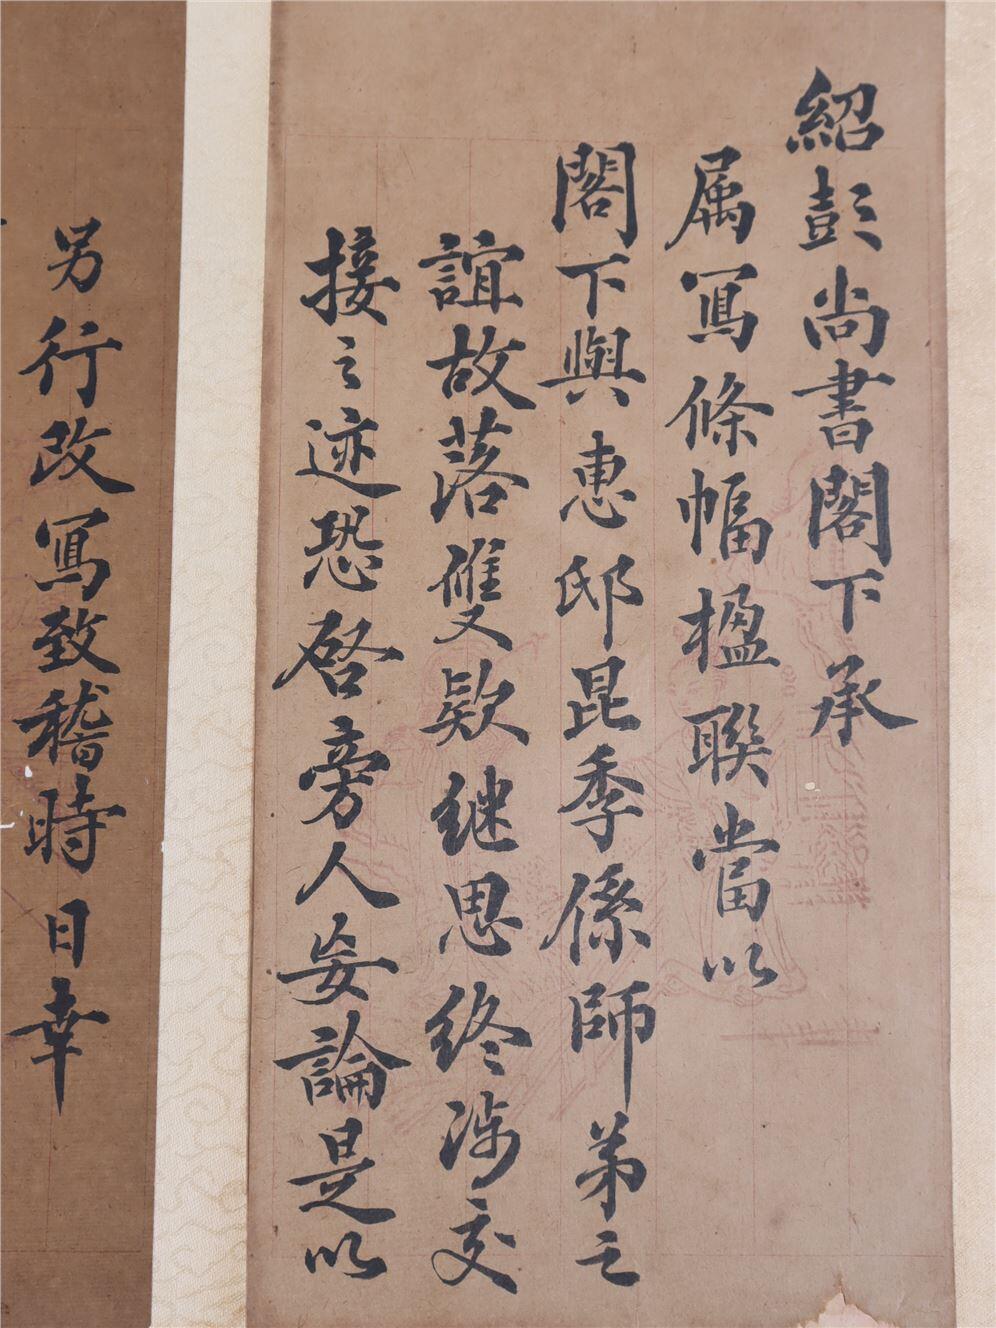 紹彭尚書閣下承
属寫條幅楹聯當以
閣下與惠邸昆季係師弟之
誼故落雙款継思終涉交
接之迹恐啓旁人妄論是以
另行改寫致稽時日幸